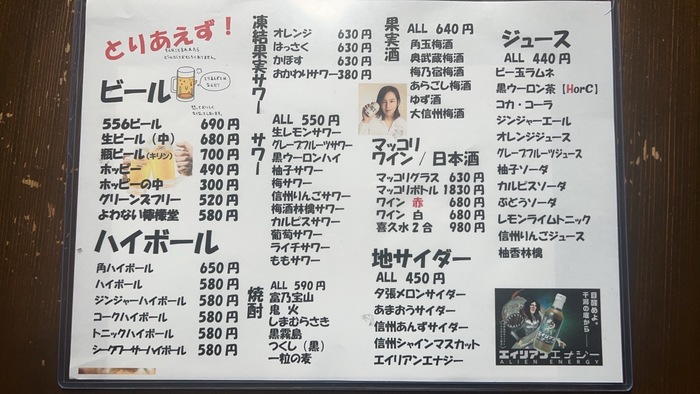 とりあえず！
ビール
556ビール 690円
生ビール（中） 680円
瓶ビール（キリン） 700円
ホッピー 490円
ホッピーの中 300円
グリーンズフリー 520円
よわない檸檬堂 580円
ハイボール
角ハイボール 650円
ハイボール 580円
ジンジャーハイボール 580円
コークハイボール 580円
トニックハイボール 580円
シークワーサーハイボール 580円
凍結果実サワー
オレンジ 630円
はっさく 630円
かぼす 630円
おかわりサワー 380円
サワー
ALL 550円
生レモンサワー
グレープフルーツサワー
黒ウーロンハイ
柚子サワー
梅サワー
信州りんごサワー
梅酒林檎サワー
カルピスサワー
葡萄サワー
ライチサワー
ももサワー
焼酎
ALL 590円
富乃宝山
鬼火
しまむらさき
黒霧島
つくし（黒）
一粒の麦
果実酒
ALL 640円
角玉梅酒
奥武蔵梅酒
梅乃宿梅酒
あらごし梅酒
ゆず酒
大信州梅酒
マッコリ
ワイン / 日本酒
マッコリグラス 630円
マッコリボトル 1830円
ワイン 赤 680円
ワイン 白 680円
喜久水2合 980円
地サイダー
ALL 450円
夕張メロンサイダー
あまおうサイダー
信州あんずサイダー
信州シャインマスカット
エイリアンエナジー
ジュース
ALL 440円
ビー玉ラムネ
黒ウーロン茶【HorC】
コカ・コーラ
ジンジャーエール
オレンジジュース
グレープフルーツジュース
柚子ソーダ
カルピスソーダ
ぶどうソーダ
レモンライムトニック
信州りんごジュース
柚香林檎
目醒めよ。
干潟の底から
エイリアンエナジー
ALIEN ENERGY